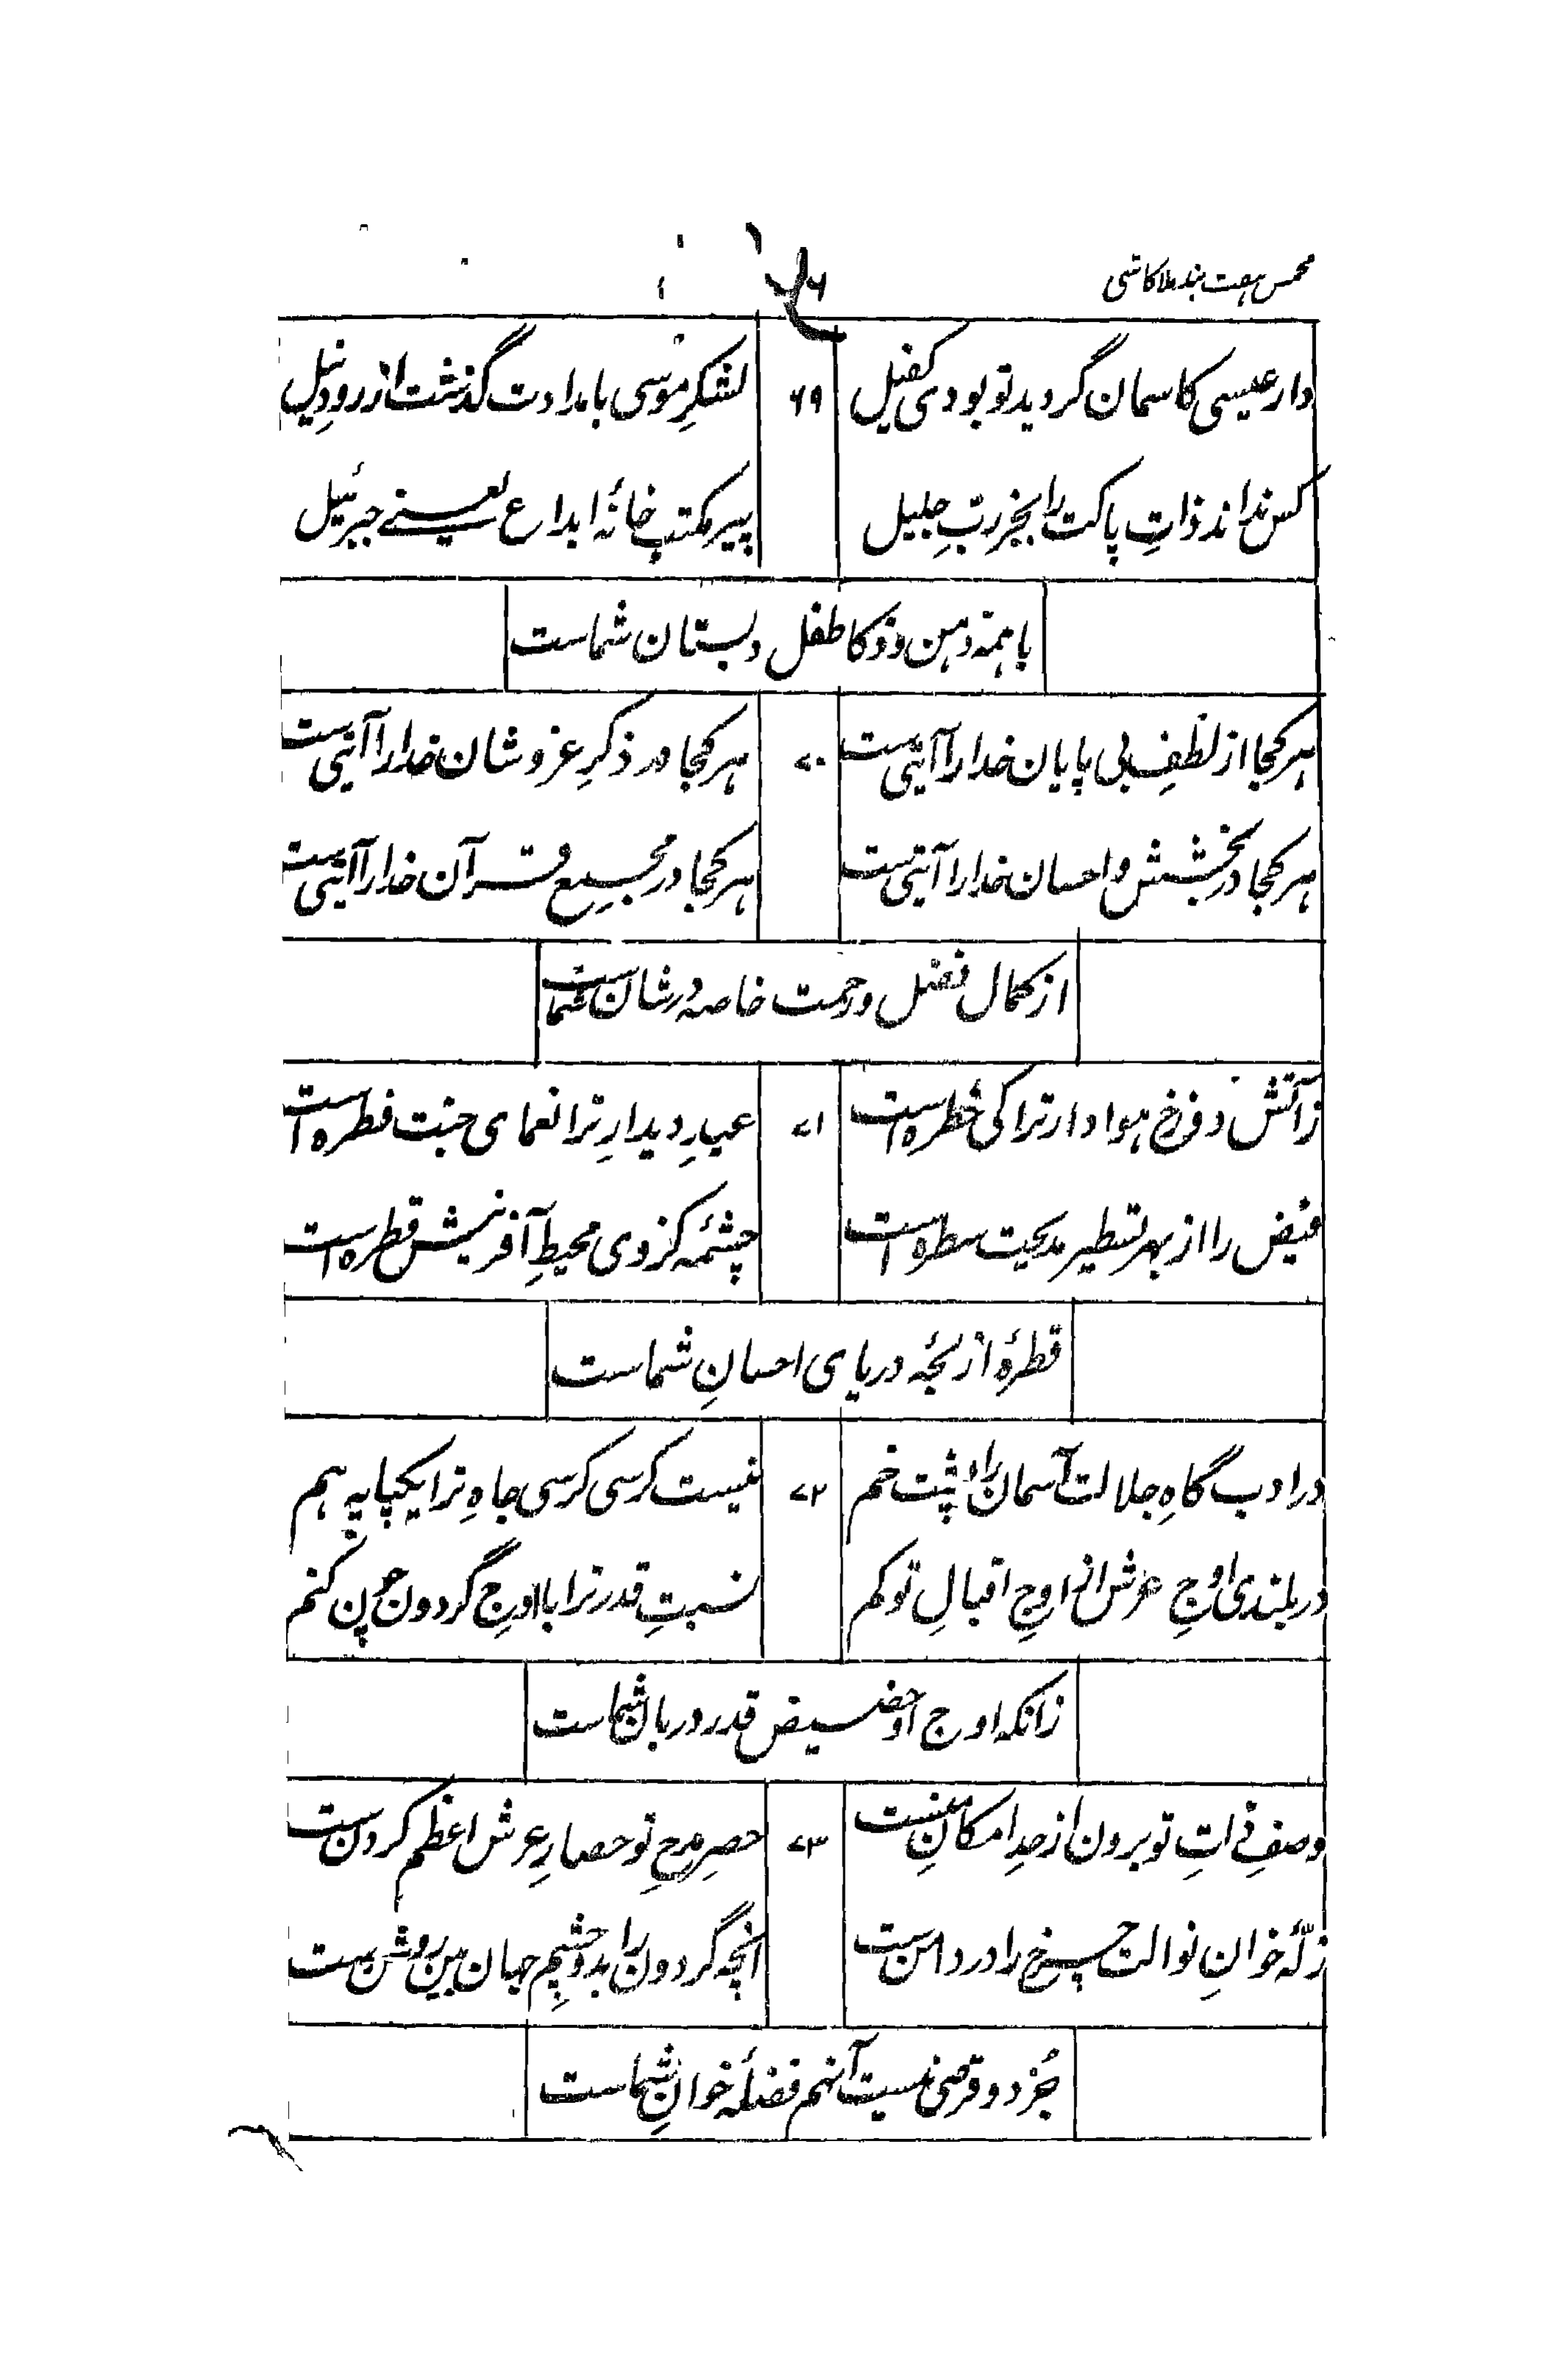 مخمس ہفت بند ملا کاشی
دار عیسی کاسمان گردید تو بودی کفیل ۶۹ لشکرِ موسی بامدادت گذشت از رودِ نیل
کس نداند ذاتِ پاکت را بجز ربِّ جلیل پیر مکتب خانۂ ابداع یعنے جبرئیل
با ہمہ ذہن و ذکا طفل دبستان شماست
ہر کجا از لطفِ بی پایان خدا را آیتی ست ۷۰ ہر کجا در ذکرِ عز و شان خدا را آیتی ست
ہر کجا در بخشش و احسان خدا را آیتی ست ہر کجا در مجمع قرآن خدا را آیتی ست
از کمال فضل و رحمت خاصہ در شان شماست
ز آتش دوزخ ہوادار ترا کی خطرہ است ۷۱ عیدِ دیدارِ ترا نعمای جنت فطرہ است
فیض را از بہر تسطیر مدیحت سطرہ است چشمۂ کز وی محیطِ آفرینش قطرہ است
قطرۂ از لجۂ دریای احسانِ شماست
در ادب گاہِ جلالت آسمان را پشت خم ۷۲ نیست کرسی کرسی جاہِ ترا یکپایہ ہم
در بلندی اوجِ عرش از اوجِ اقبالِ تو کم نسبتِ قدر ترا با اوجِ گردون چون کنم
زانکہ اوج او حضیض قدر دربان شماست
وصفِ ذاتِ تو برون از حدِ امکانِ منست ۷۳ حصرِ مدحِ تو حصارِ عرش اعظم کردنست
زلّۂ خوانِ نوالت چرخ را در دامن ست آنچہ گردون را بدو چشمِ جہان بین روشن ست
جُز دو قرصی نیست آنہم فضلۂ خوانِ شماست